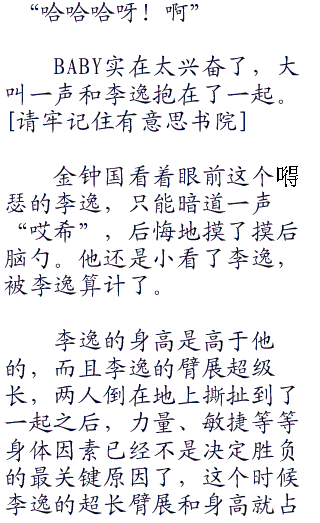 “哈哈哈呀！啊”
BABY实在太兴奋了，大
叫一声和李逸抱在了一起。
[请牢记住有意思书院]
金钟国看着眼前这个嘚
瑟的李逸，只能暗道一声
“哎希”，后悔地摸了摸后
脑勺。他还是小看了李逸，
被李逸算计了。
李逸的身高是高于他
的，而且李逸的臂展超级
长，两人倒在地上撕扯到了
一起之后，力量、敏捷等等
身体因素已经不是决定胜负
的最关键原因了，这个时候
李逸的超长臂展和身高就占